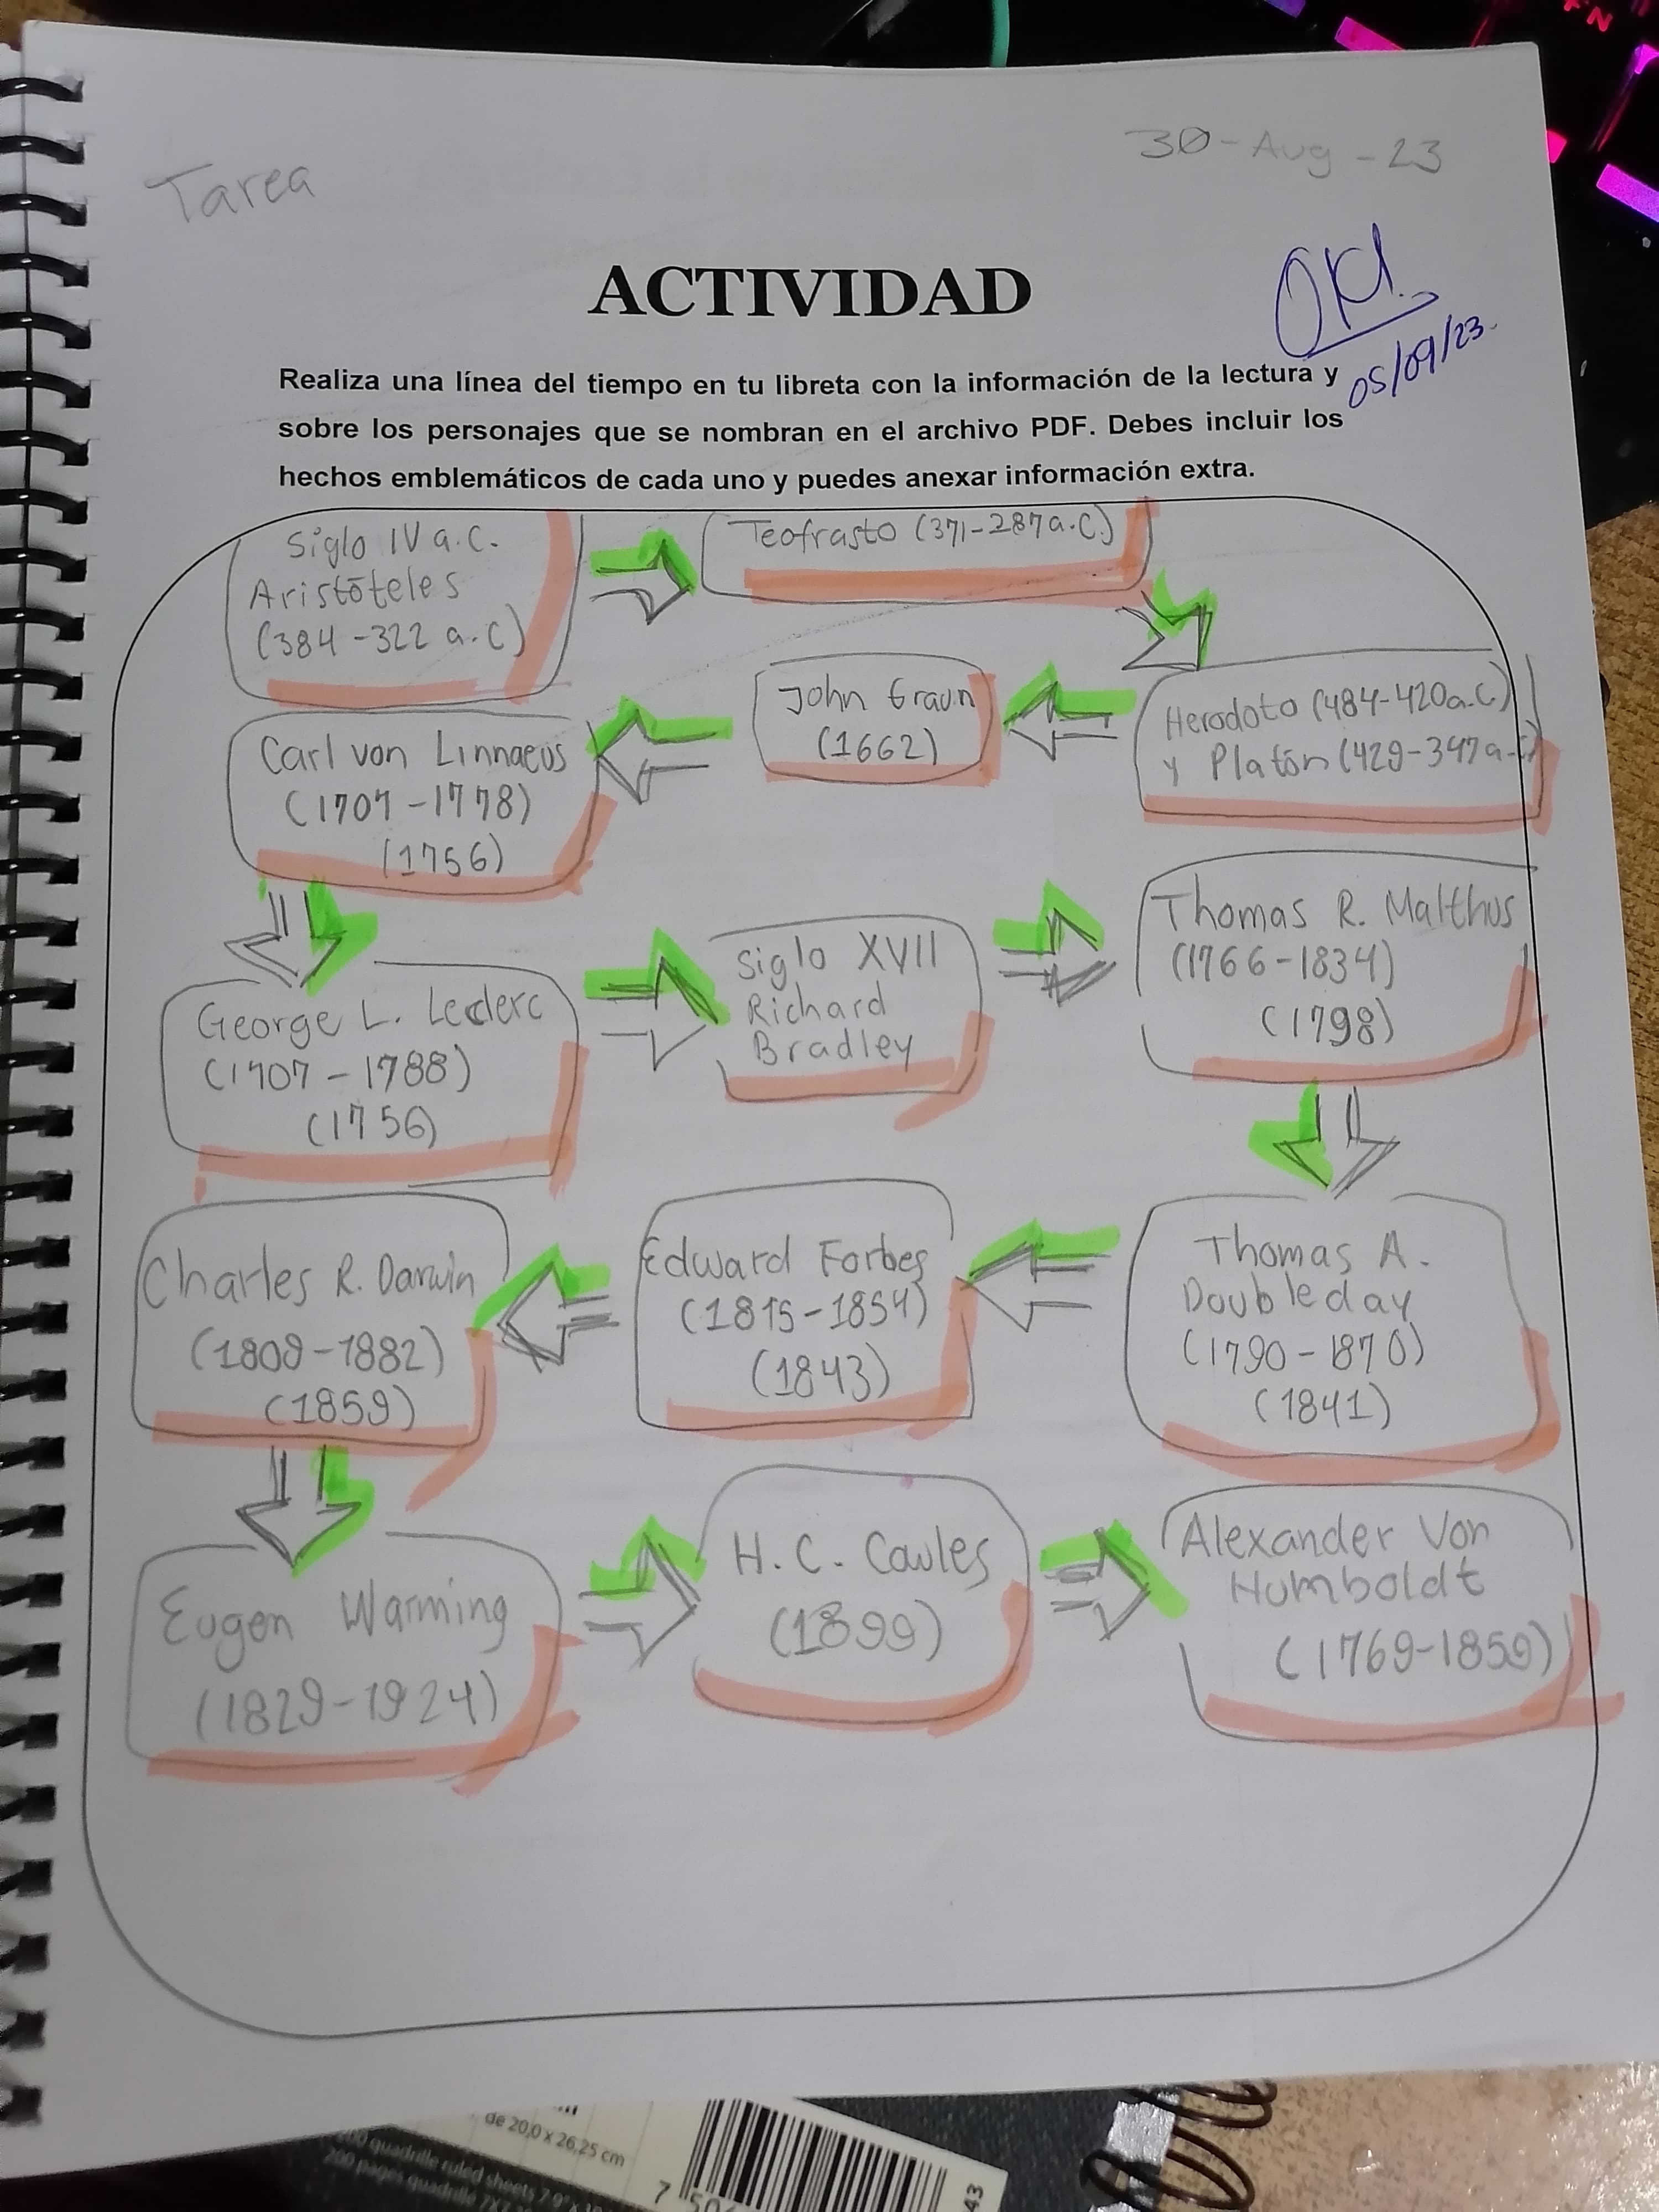 Tarea
30-Aug-23
ACTIVIDAD
OK
05/09/23.
Realiza una línea del tiempo en tu libreta con la información de la lectura y
sobre los personajes que se nombran en el archivo PDF. Debes incluir los
hechos emblemáticos de cada uno y puedes anexar información extra.
Siglo IV a.C.
Aristóteles
(384-322 a.C)
Teofrasto (371-287a.C.)
Herodoto (484-420a.C)
y Platón (429-347a.C)
John Graun
(1662)
Carl von Linnaeus
(1707-1778)
(1756)
George L. Leclerc
(1707-1788)
(1756)
Siglo XVII
Richard
Bradley
Thomas R. Malthus
(1766-1834)
(1798)
Thomas A.
Doubleday
(1790-1870)
(1841)
Edward Forbes
(1815-1854)
(1843)
Charles R. Darwin
(1809-1882)
(1859)
Eugen Warming
(1829-1924)
H. C. Cowles
(1899)
Alexander Von
Humboldt
(1769-1859)
de 20,0 x 26,25 cm
quadrille ruled sheets 7.9"
200 pages quadrillé 7X7
7
43